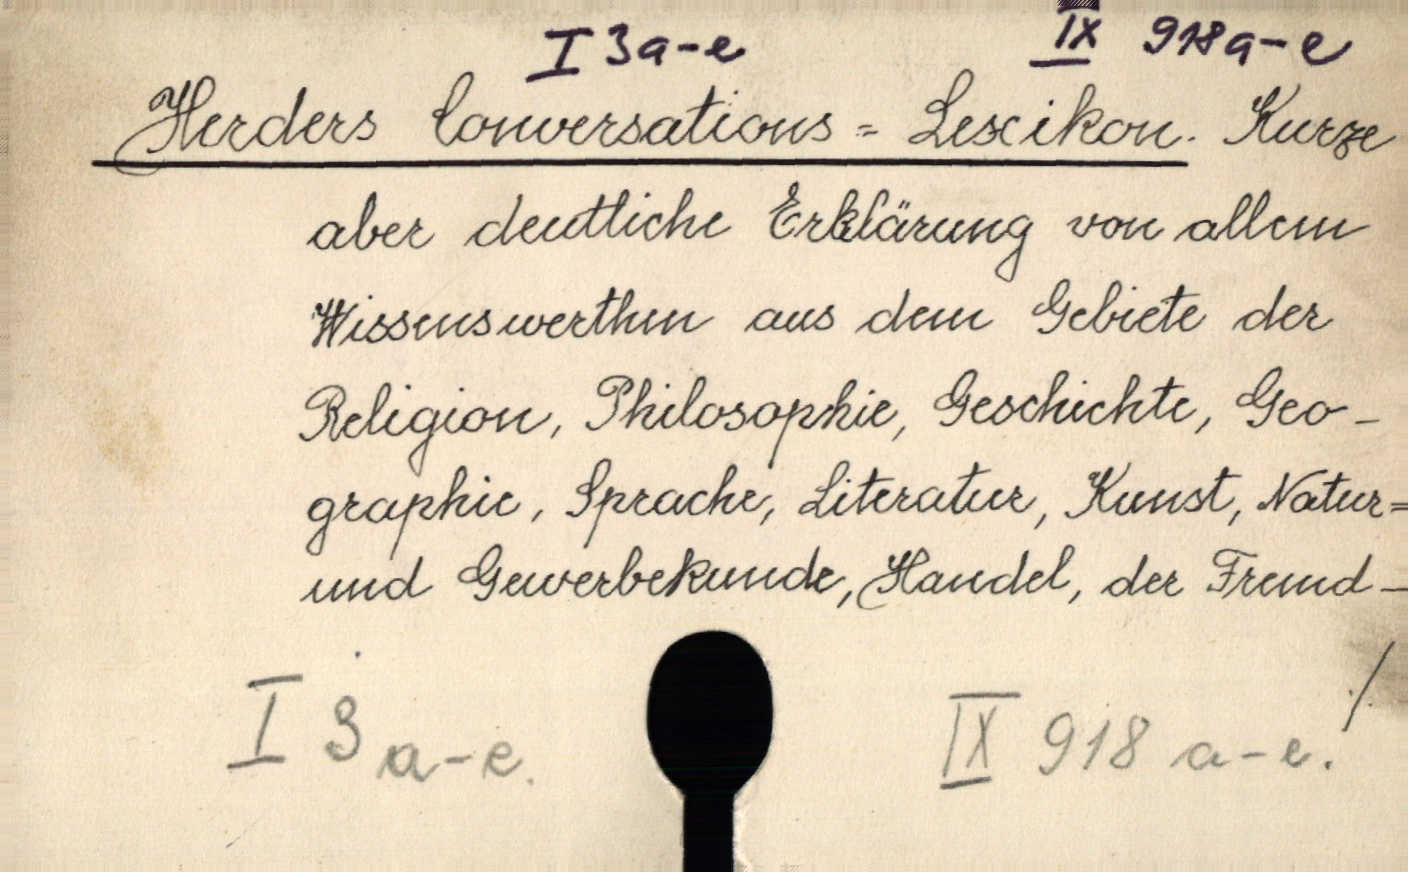 I 3a-e IX 918a-e
Herders Conversations=Lexikon. Kurze
aber deutliche Erklärung von allem
Wissenswerthen aus dem Gebiete der
Religion, Philosophie, Geschichte, Geo-
graphie, Sprache, Literatur, Kunst, Natur=
und Gewerbekunde, Handel, der Fremd-
./.
I 3 a-e. IX 918 a-e.